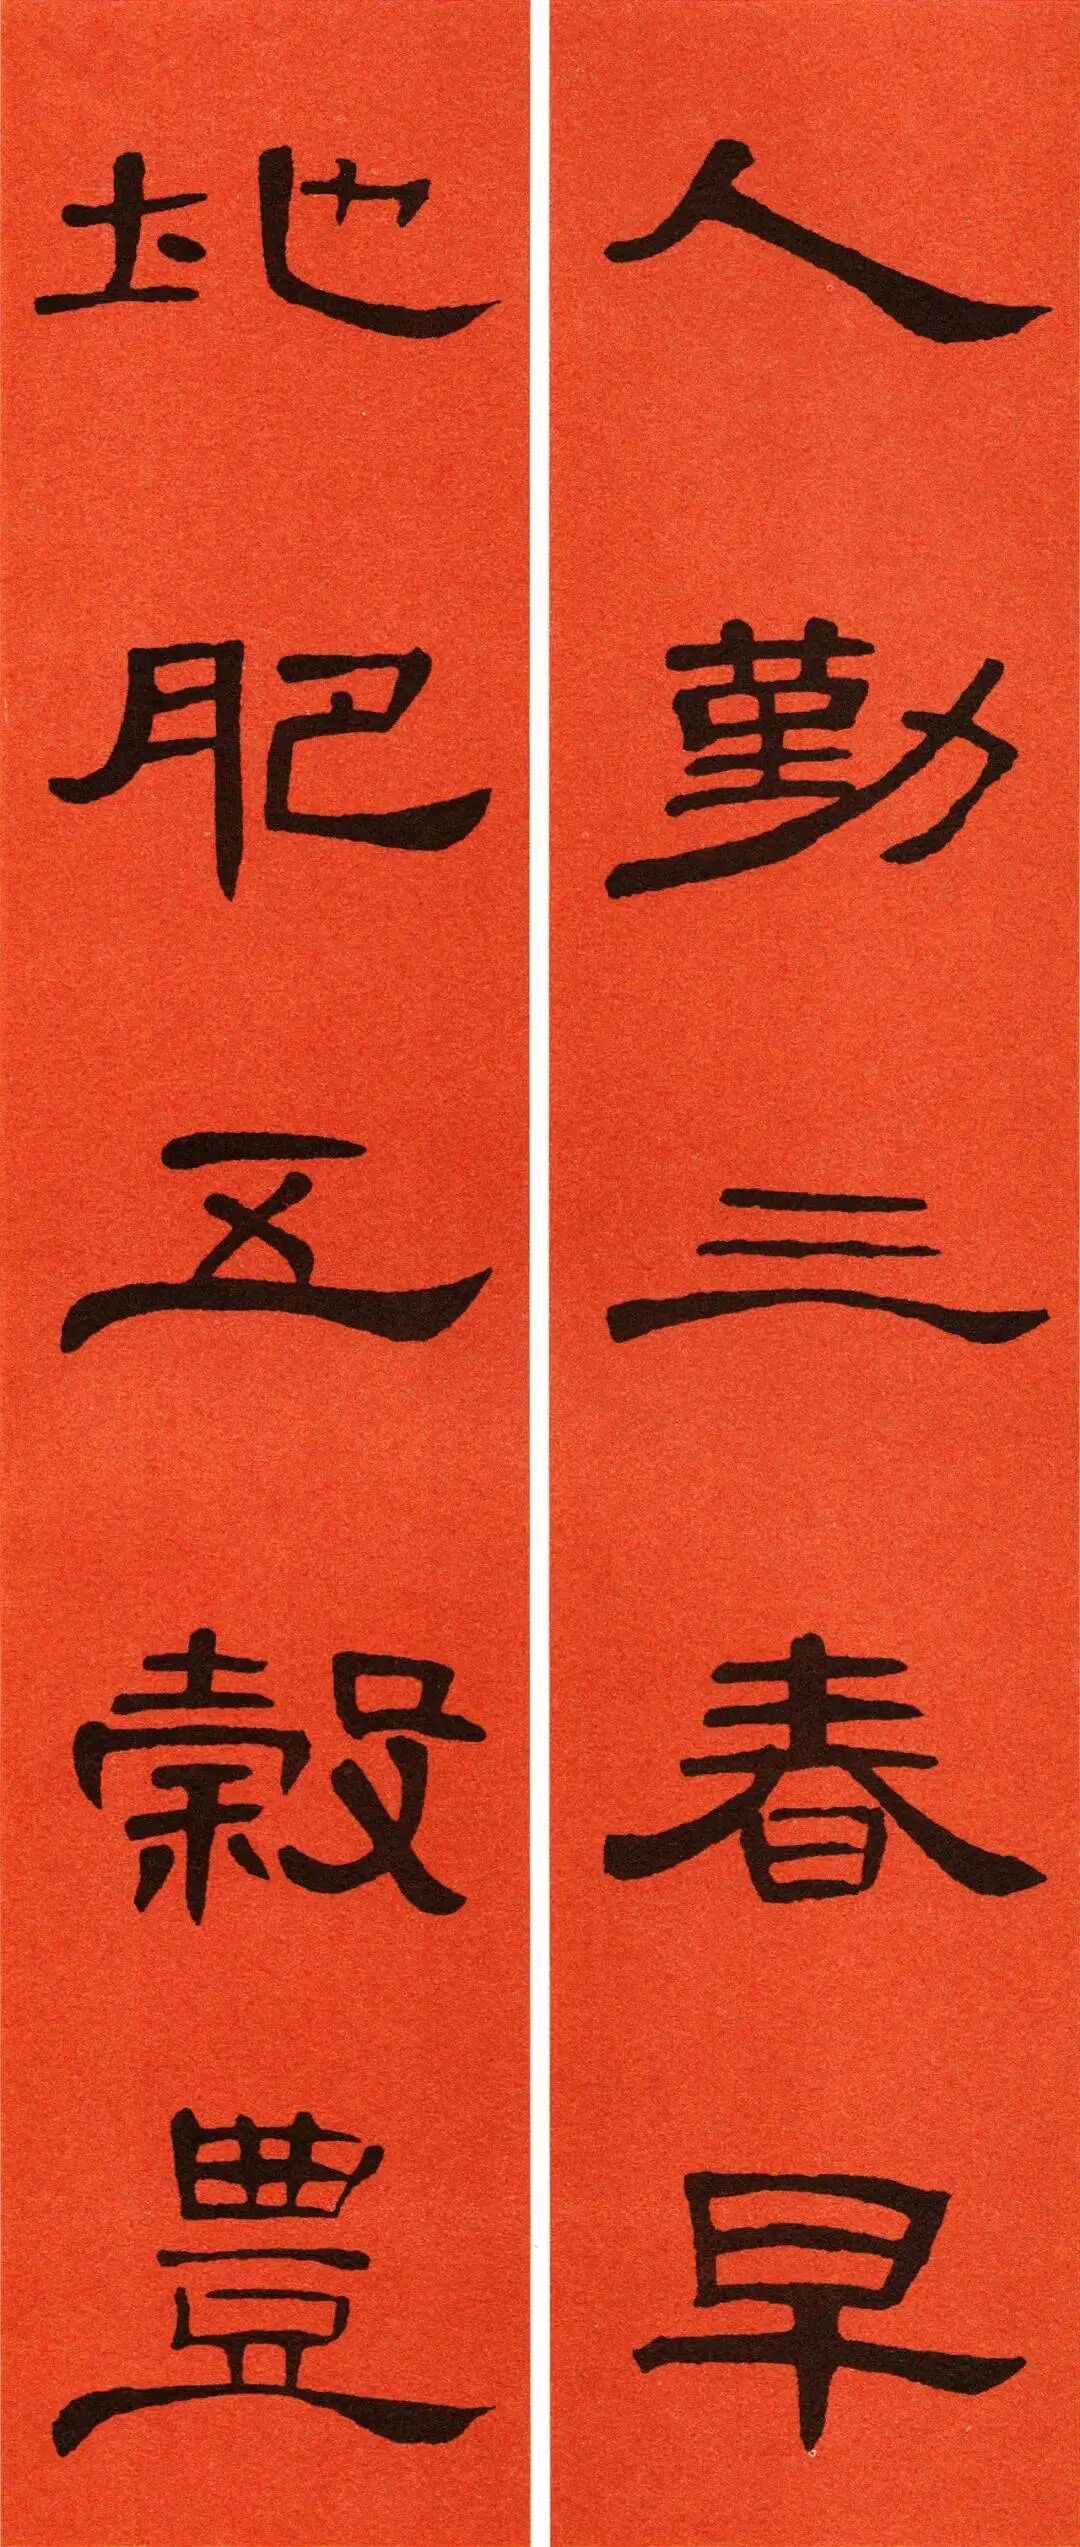 人勤三春早
地肥五穀豐